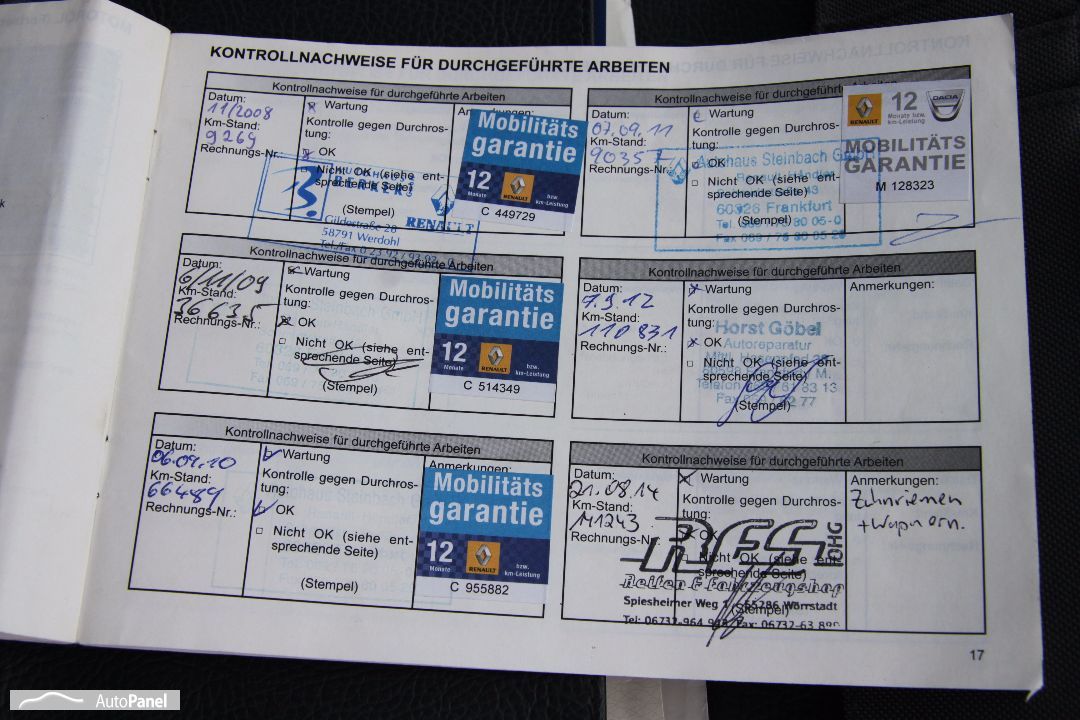 KONTROLLNACHWEISE FÜR DURCHGEFÜHRTE ARBEITEN
Kontrollnachweise für durchgeführte Arbeiten
Datum:
11/2008
Km-Stand:
9269
Rechnungs-Nr.:
Wartung
Kontrolle gegen Durchros-
tung:
OK
Nicht OK (siehe ent-
sprechende Seite)
(Stempel)
RENAULT
Gildestraße 28
58791 Werdohl
Mobilitäts
garantie
12
Monate
RENAULT
bzw.
km-Leistung
C 449729
Kontrollnachweise für durchgeführte Arbeiten
Datum:
6/11/09
Km-Stand:
36635
Rechnungs-Nr.:
Wartung
Kontrolle gegen Durchros-
tung:
OK
Nicht OK (siehe ent-
sprechende Seite)
(Stempel)
Mobilitäts
garantie
12
Monate
RENAULT
bzw.
km-Leistung
C 514349
Kontrollnachweise für durchgeführte Arbeiten
Datum:
06.09.10
Km-Stand:
66489
Rechnungs-Nr.:
Wartung
Kontrolle gegen Durchros-
tung:
OK
Nicht OK (siehe ent-
sprechende Seite)
(Stempel)
Anmerkungen:
Mobilitäts
garantie
12
Monate
RENAULT
bzw.
km-Leistung
C 955882
Kontrollnachweise für durchgeführte Arbeiten
Datum:
07.09.11
Km-Stand:
90357
Rechnungs-Nr.:
Wartung
Kontrolle gegen Durchros-
tung:
OK
Nicht OK (siehe ent-
sprechende Seite)
(Stempel)
Autohaus Steinbach GmbH
60326 Frankfurt
RENAULT
12
Monate bzw.
km-Leistung
DACIA
MOBILITÄTS
GARANTIE
M 128323
Kontrollnachweise für durchgeführte Arbeiten
Datum:
7.9.12
Km-Stand:
110831
Rechnungs-Nr.:
Wartung
Kontrolle gegen Durchros-
tung:
OK
Nicht OK (siehe ent-
sprechende Seite)
(Stempel)
Horst Göbel
Autoreparatur
Anmerkungen:
Kontrollnachweise für durchgeführte Arbeiten
Datum:
21.08.14
Km-Stand:
Rechnungs-Nr.:
Wartung
Kontrolle gegen Durchros-
tung:
OK
Nicht OK (siehe ent-
sprechende Seite)
(Stempel)
RFS OHG
Reifen-Fahrzeugshop
Spiesheimer Weg
55286 Wörrstadt
Anmerkungen:
Zahnriemen
17
AutoPanel